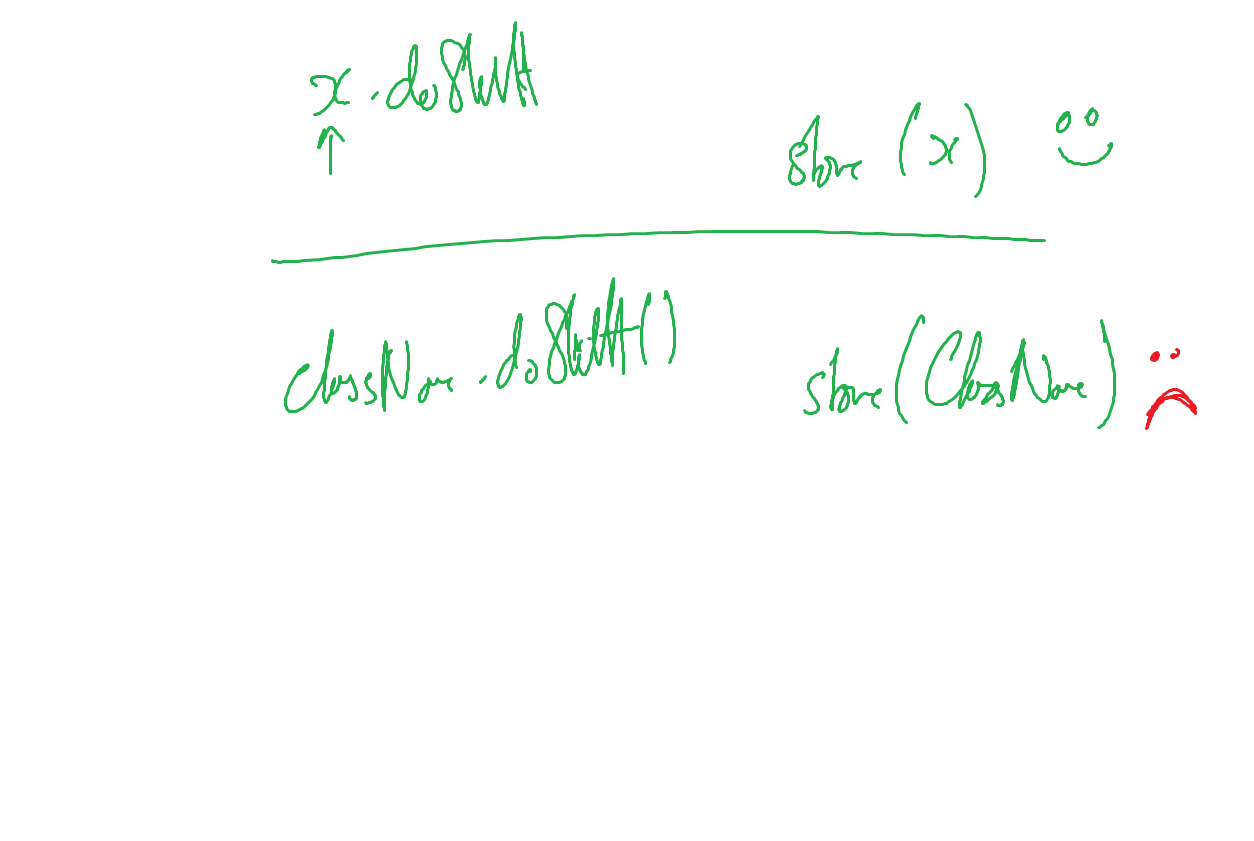 x.doStuff
store (x)
ClassName.doStuff()
store(ClassName)